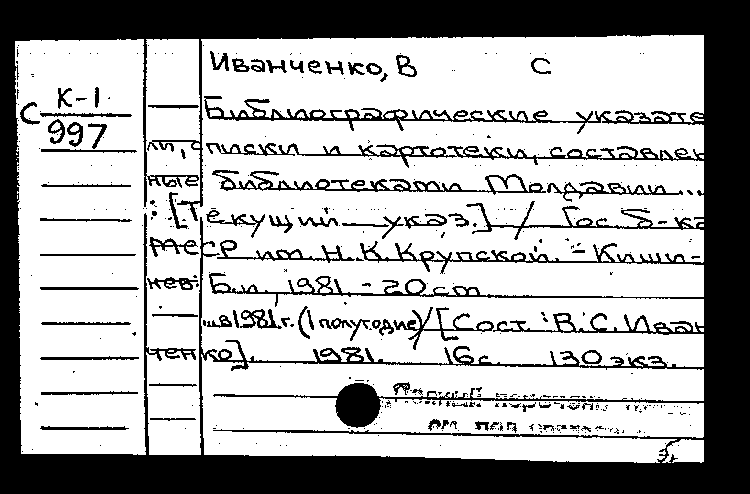 Иванченко, В С
С К-1
997
Библиографические указате
ли, списки и картотеки, составлен
ные библиотеками Молдавии...
: [Текущий указ.] / Гос. б-ка
МССР им. Н. К. Крупской. - Киши-
нев: Б.и., 1981. - 20 cm
...в 1981 г. (I полугодие) / [Сост. В. С. Иван
ченко]. 1981. 16 с. 130 экз.
Полный перечень
см. под